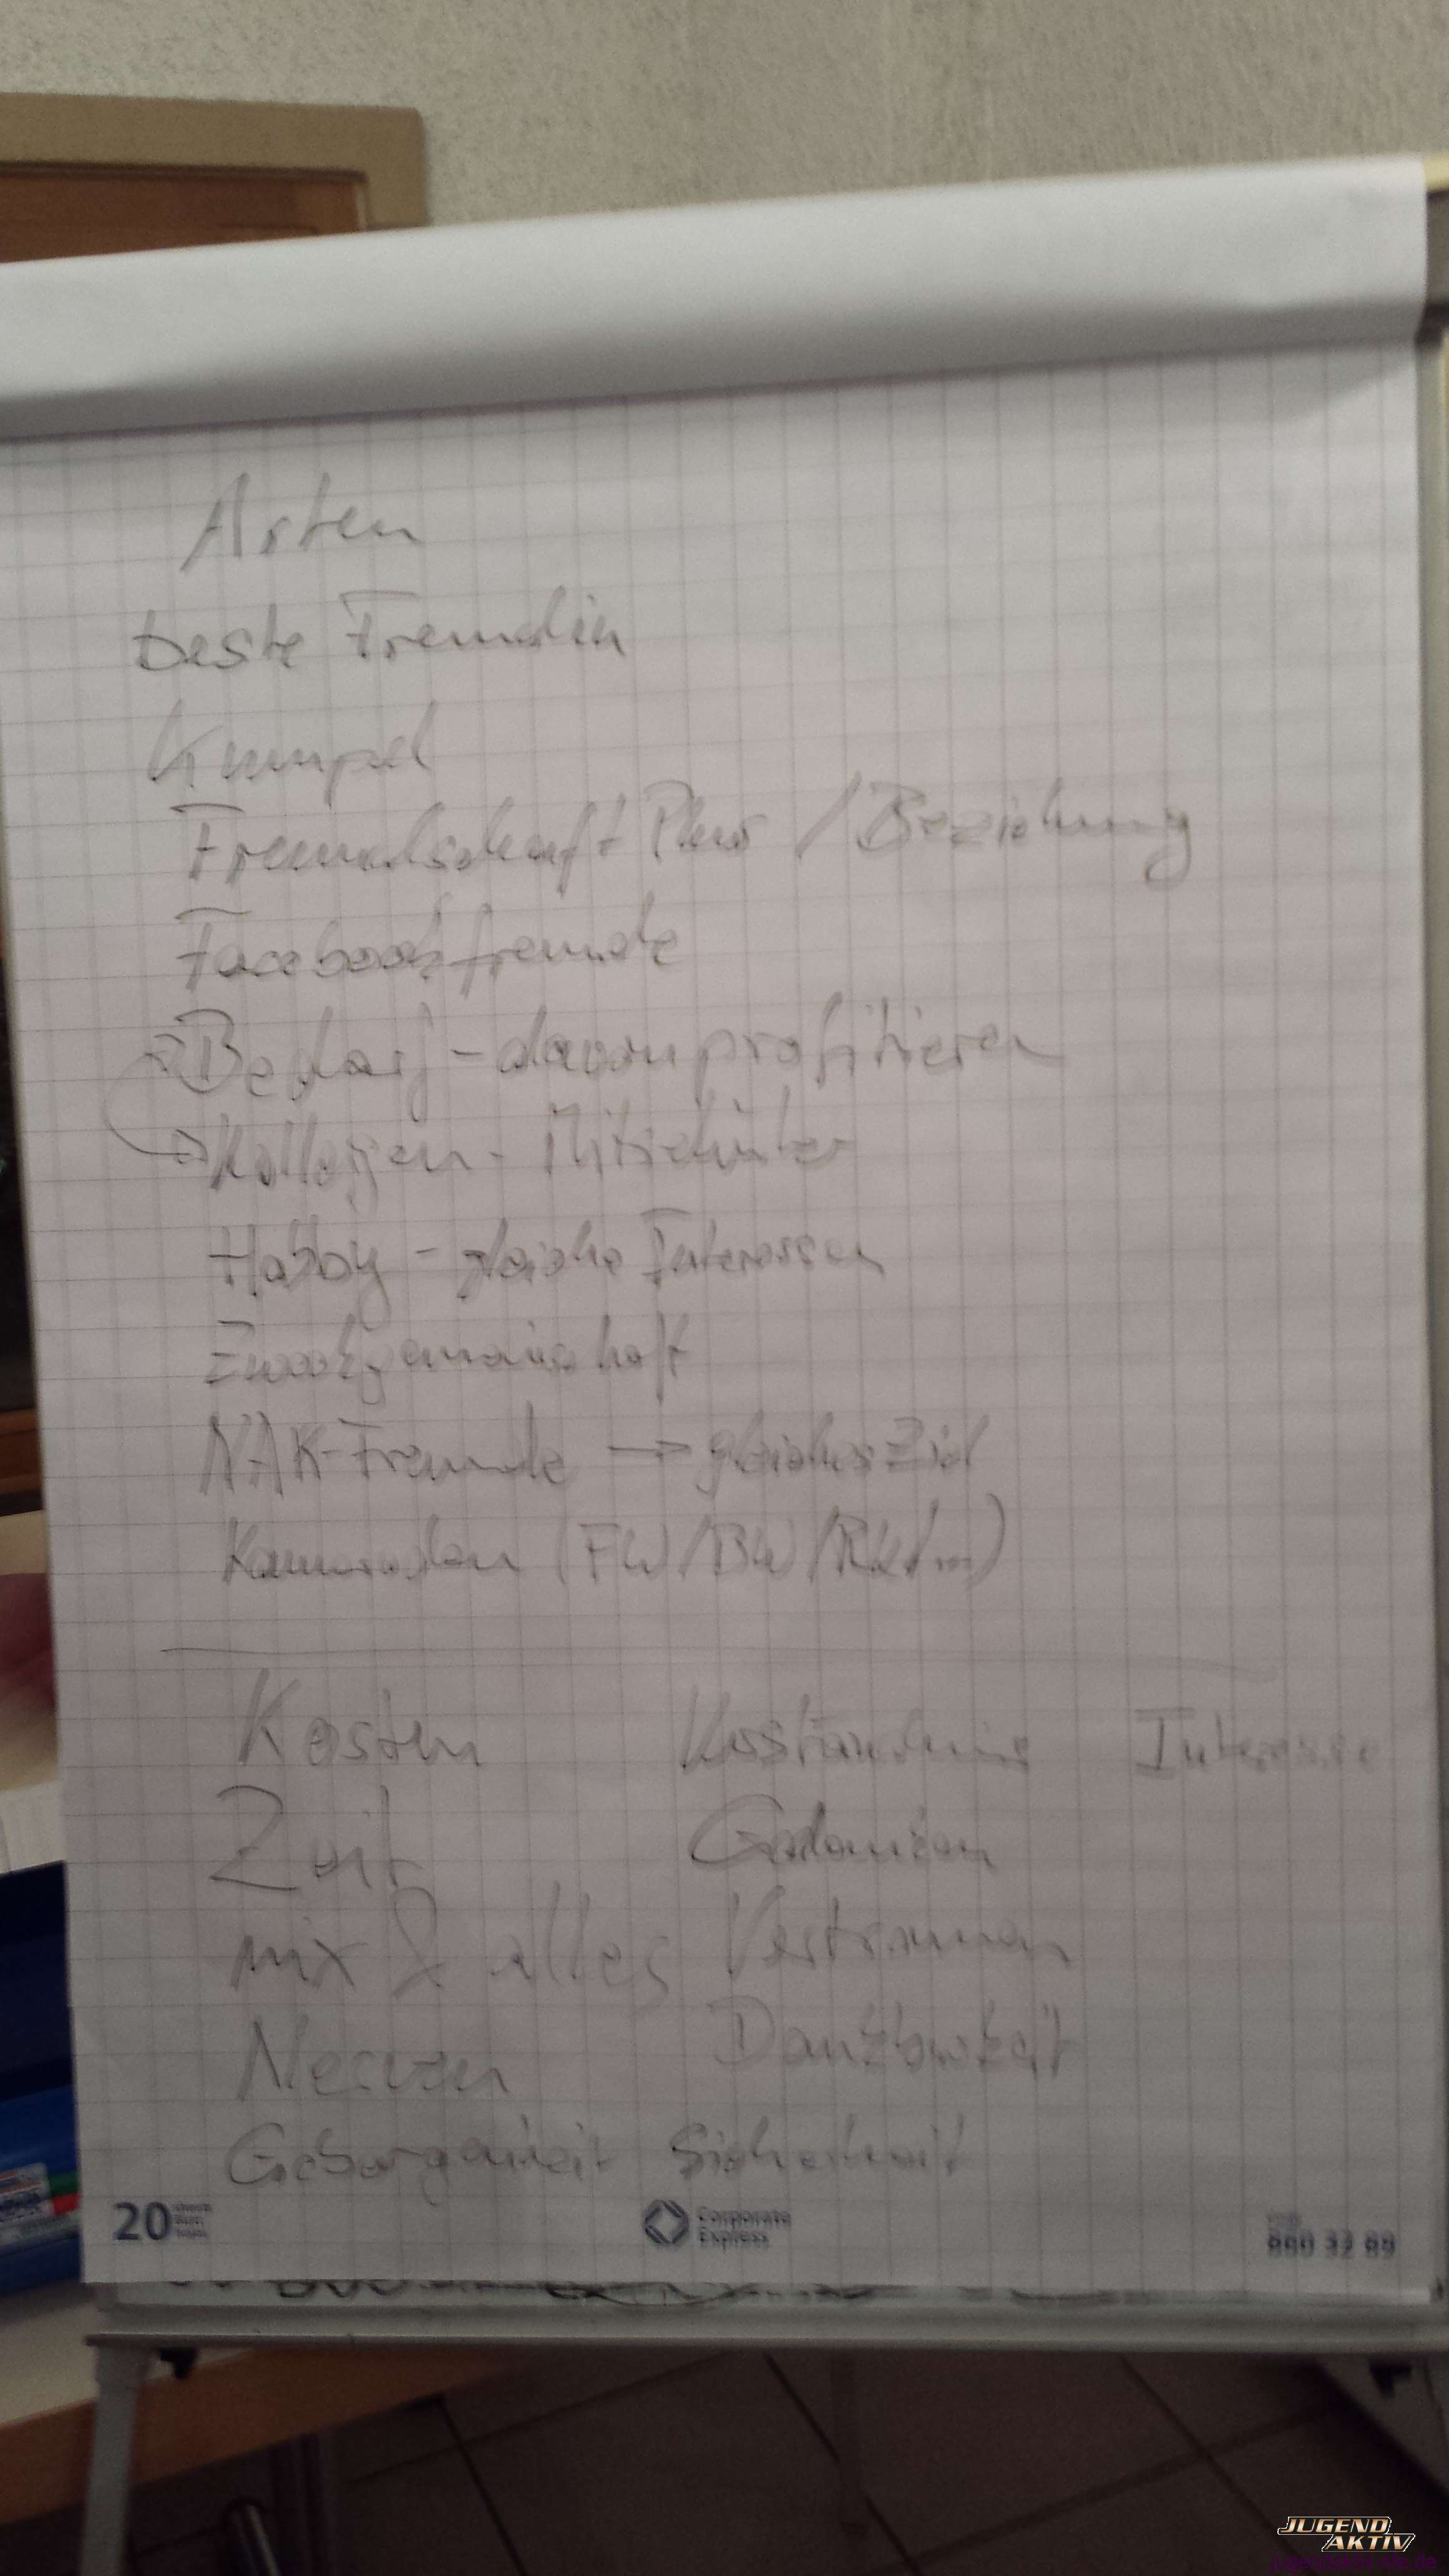 Arten
beste Freundin
Kumpel
Freundschaft Plus / Beziehung
Facebookfreunde
Bedarf - davon profitieren
Kollegen - Mitschüler
Hobby - gleiche Interessen
Zweckgemeinschaft
NAK-Freunde → gleiches Ziel
Kameraden (FW/BW/
Kosten Verständnis Interesse
Zeit Gedanken
nix & alles Vertrauen
Nerven Dankbarkeit
Geborgenheit Sicherheit
20 Corporate
Express
JUGEND
AKTIV